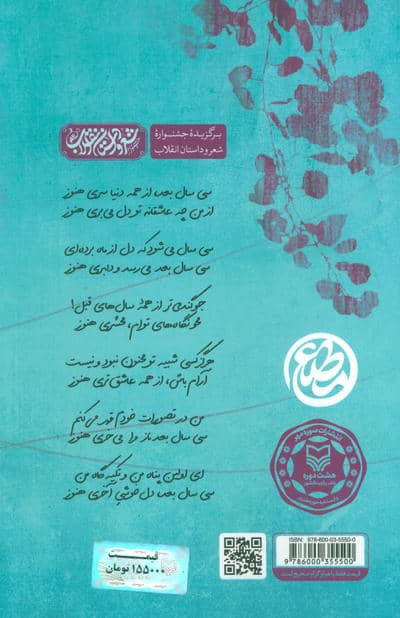 برگزیدهٔ جشنوارهٔ
شعر و داستان انقلاب
سی سال بعد از همه دنیا سری هنوز
از من چه عاشقانه تو دل می‌بری هنوز
سی سال می‌شود که دل از ماه برده‌ای
سی سال بعد می‌رسد و دلبری هنوز
جو گندمی‌تر از همهٔ سال‌های قبل!
محو نگاه‌های توام، محشری هنوز
هرگز کسی شبیه تو مجنون نبود و نیست
آرام باش، از همه عاشق‌تری هنوز
من در تصورات خودم قهر می‌کنم
سی سال بعد ناز مرا می‌خری هنوز
ای اولین پناه من و تکیه‌گاه من
سی سال بعد دلخوشی آخری هنوز
انتشارات سوره مهر
هشت دوره
ISBN: 978-600-03-5550-0
9 786000 355500
قیمت
۱۵۵۰۰۰ تومان